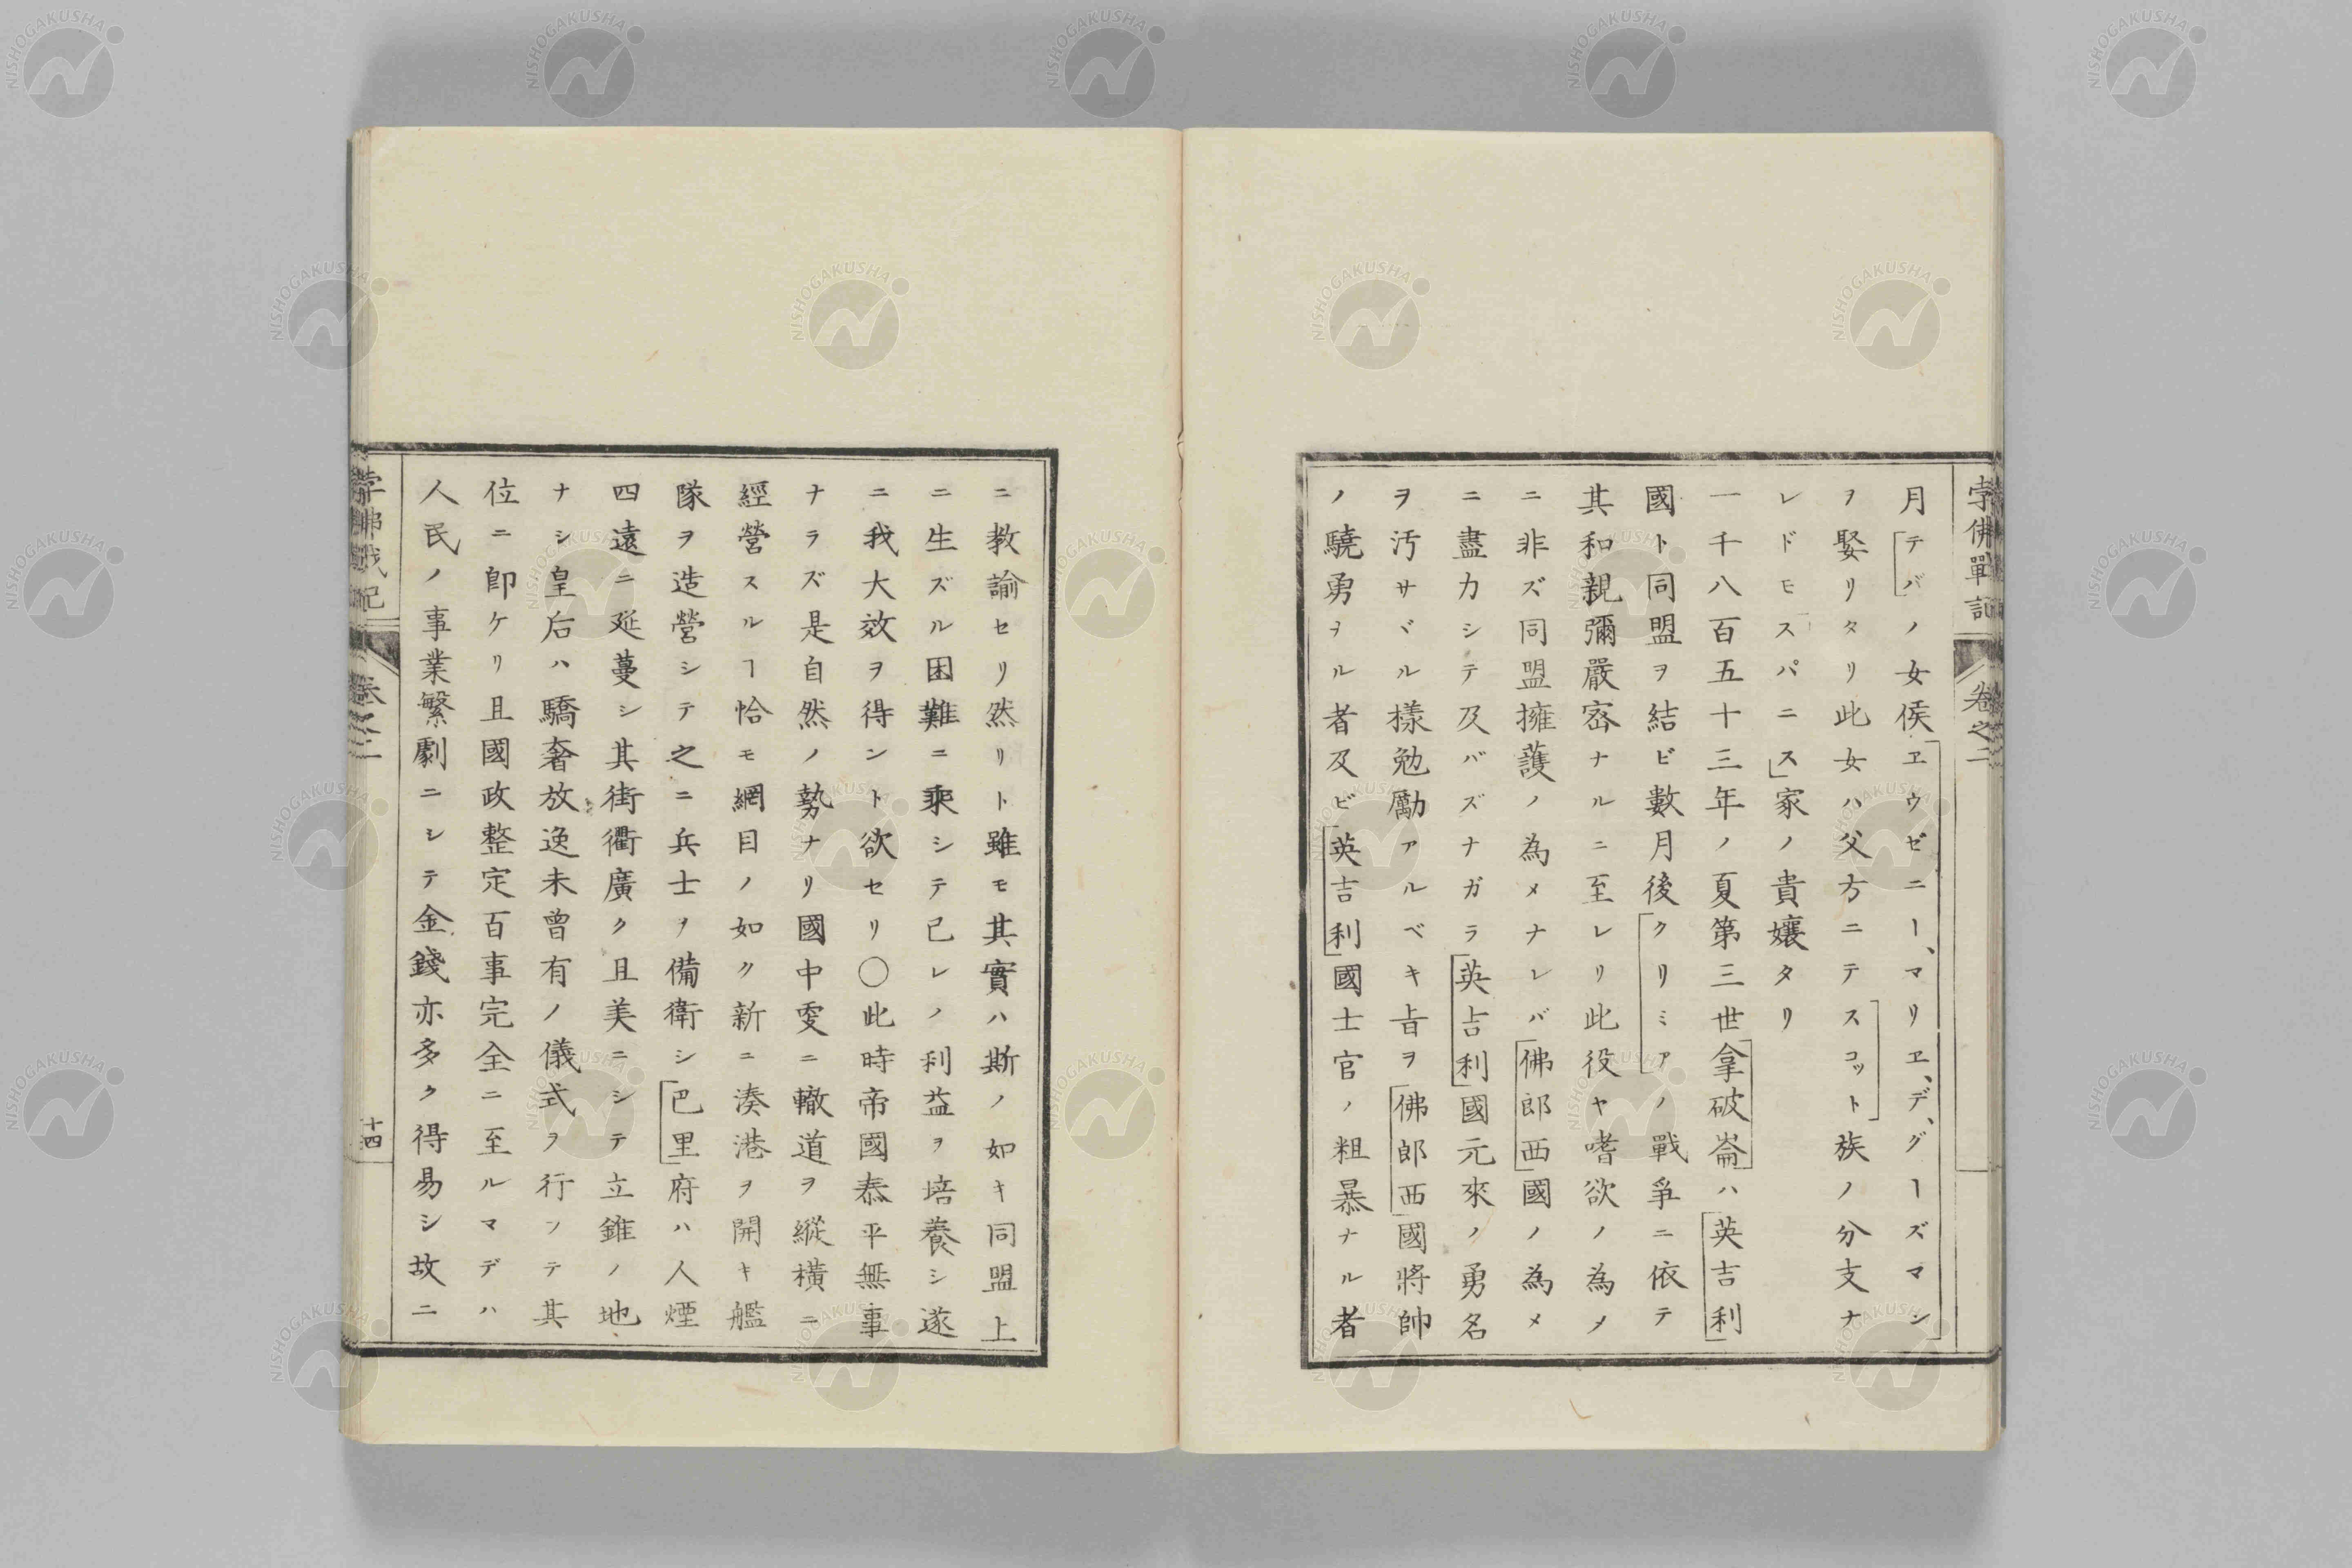 孛佛戰記
卷之二
月テバノ女侯ヱウゼニー、マリヱ、デ、グーズマン
ヲ娶リタリ此女ハ父方ニテスコット族ノ分支ナ
レドモスパニス家ノ貴孃タリ
一千八百五十三年ノ夏第三世拿破崙ハ英吉利
國ト同盟ヲ結ビ數月後クリミアノ戰爭ニ依テ
其和親彌嚴密ナルニ至レリ此役ヤ嗜欲ノ為メ
ニ非ズ同盟擁護ノ為メナレバ佛郎西國ノ為メ
ニ盡力シテ及バズナガラ英吉利國元來ノ勇名
ヲ汚サヾル樣勉勵アルベキ旨ヲ佛郎西國將帥
ノ驍勇ヲル者及ビ英吉利國士官ノ粗暴ナル者
ニ教諭セリ然リト雖モ其實ハ斯ノ如キ同盟上
ニ生ズル困難ニ乘シテ己レノ利益ヲ培養シ遂
ニ我大效ヲ得ント欲セリ〇此時帝國泰平無事
ナラズ是自然ノ勢ナリ國中雯ニ轍道ヲ縱橫ニ
經營スルヿ恰モ網目ノ如ク新ニ湊港ヲ開キ艦
隊ヲ造營シテ之ニ兵士ヲ備衛シ巴里府ハ人煙
四遠ニ延蔓シ其街衢廣ク且美ニシテ立錐ノ地
ナシ皇后ハ驕奢放逸未曾有ノ儀式ヲ行ンテ其
位ニ卽ケリ且國政整定百事完全ニ至ルマデハ
人民ノ事業繁劇ニシテ金錢亦多ク得易シ故ニ
孛佛戰記
卷之二
十四